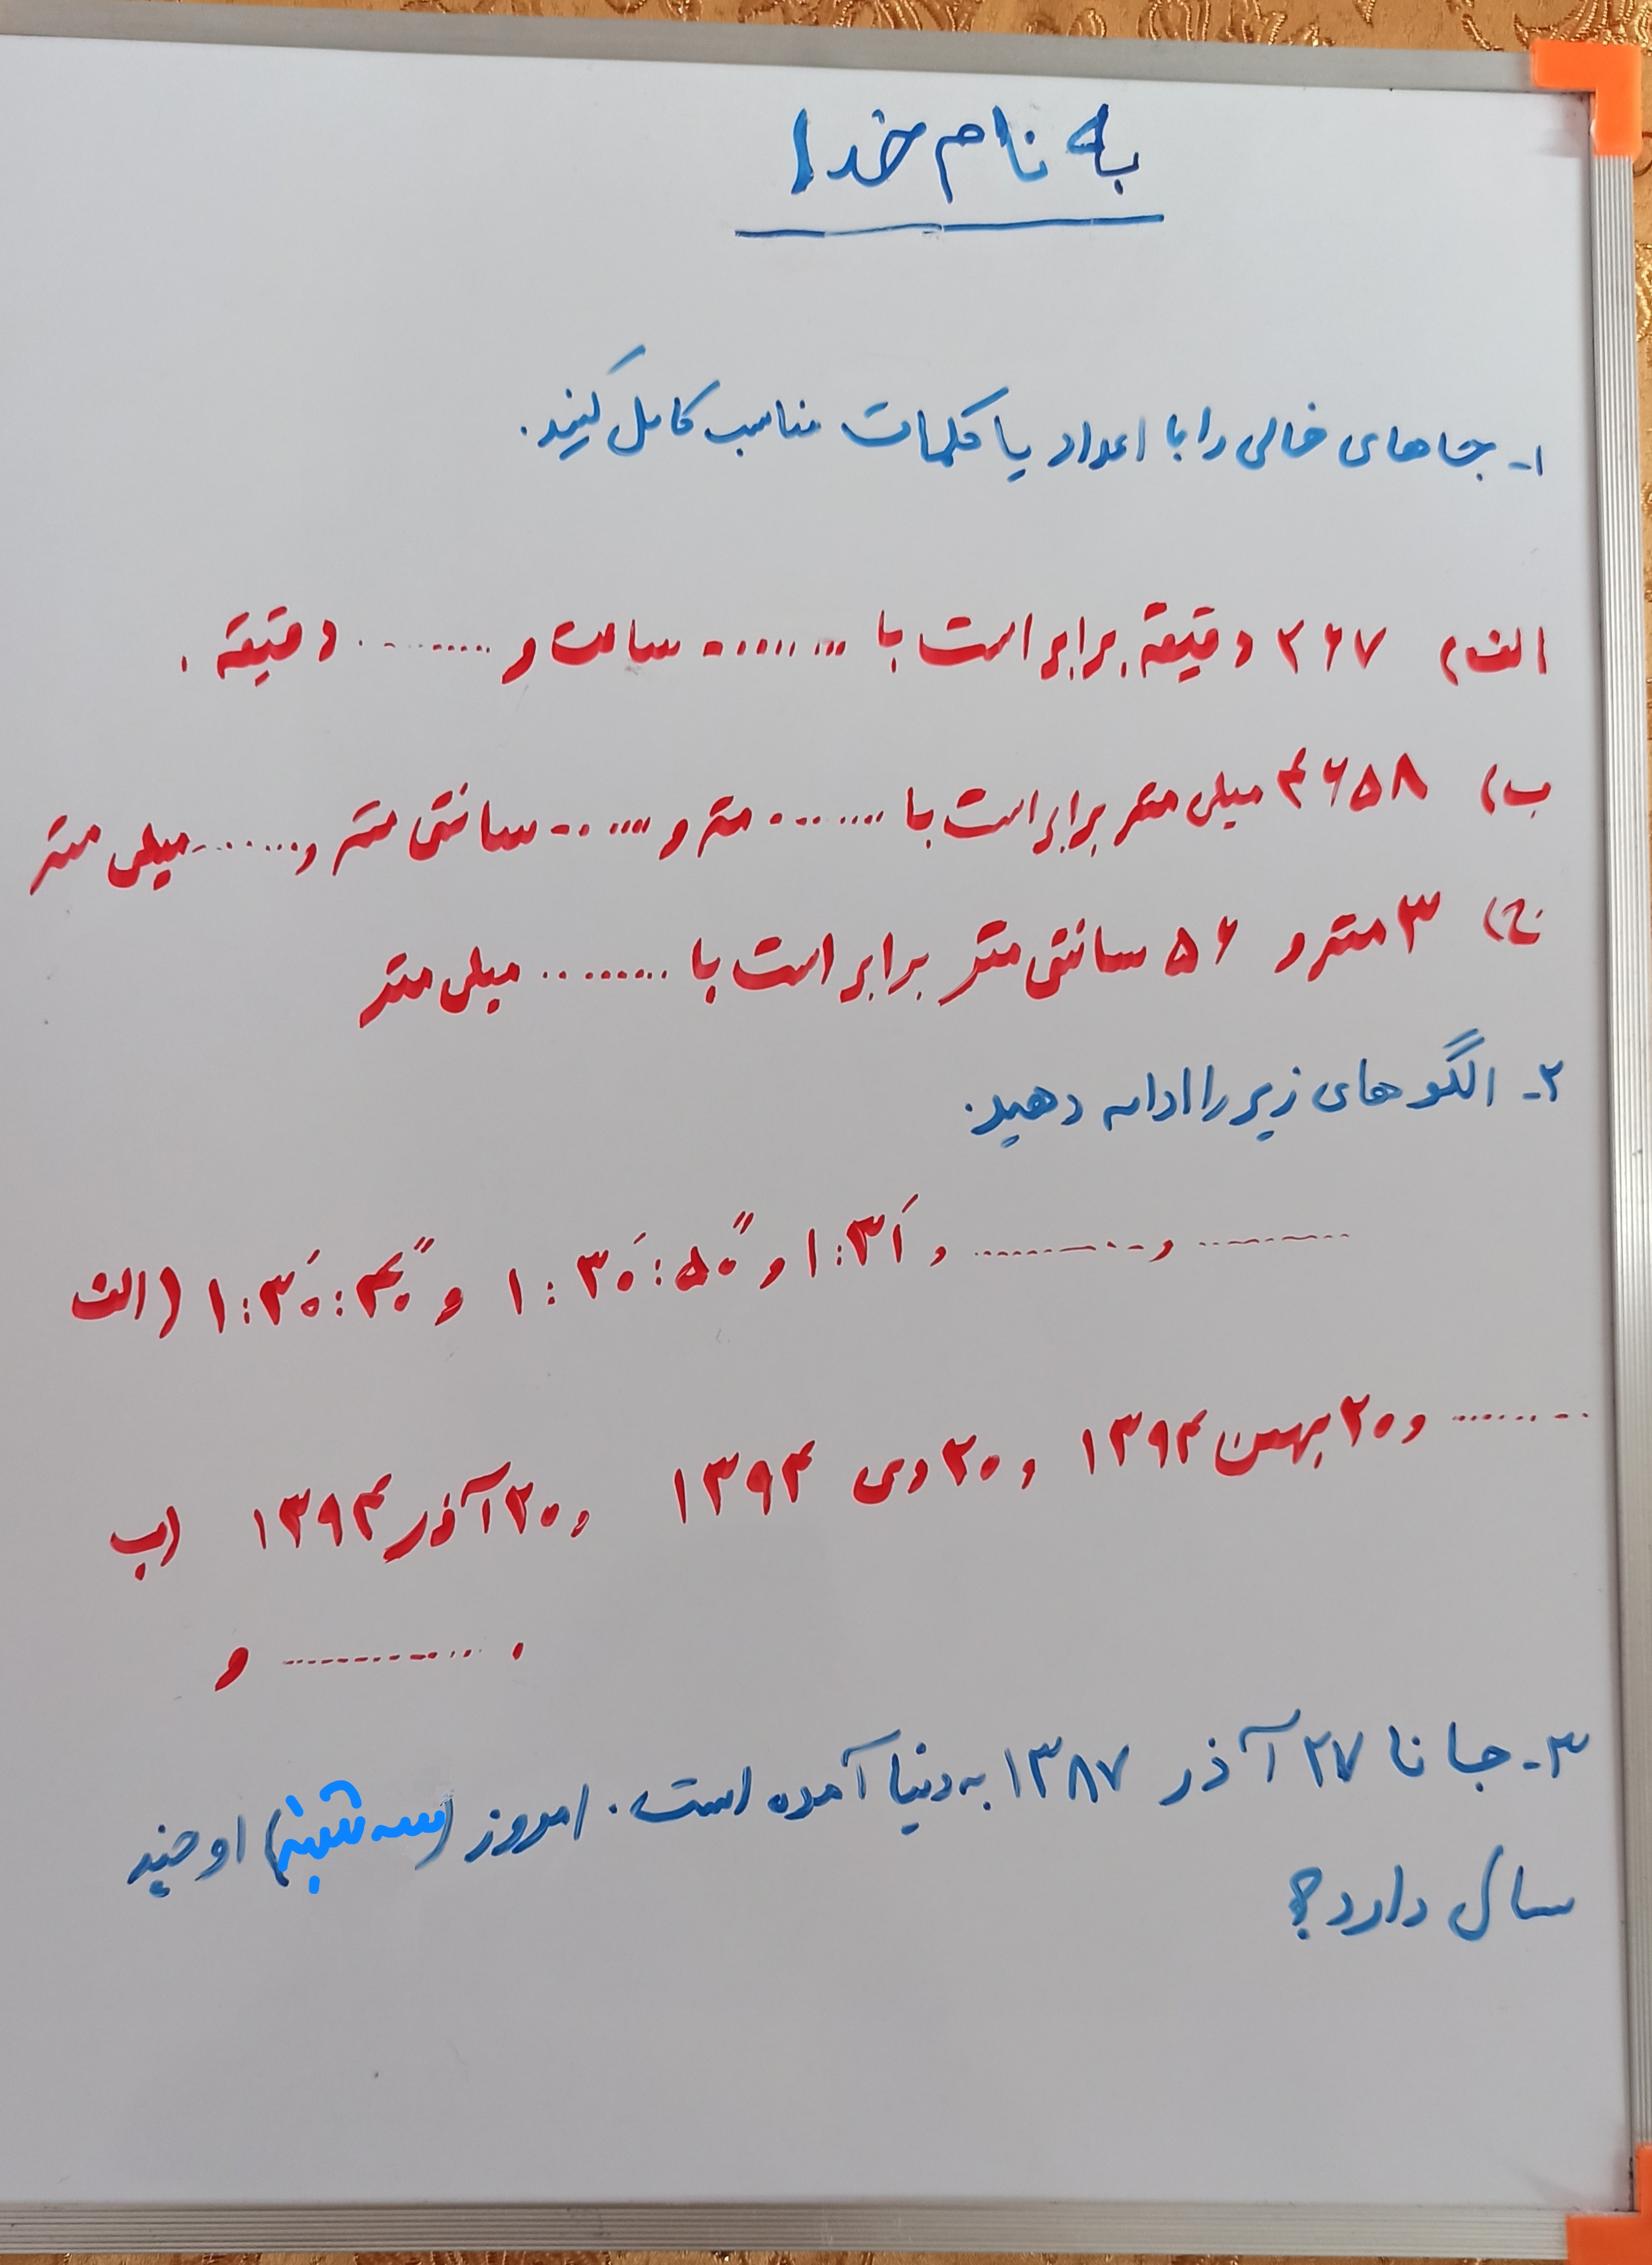 به نام خدا
۱- جاهای خالی را با اعداد یا کلمات مناسب کامل کنید.
الف) ۲۶۷ دقیقه برابر است با ......... ساعت و ......... دقیقه.
ب) ۴۶۵۸ میلی متر برابر است با ........ متر و ....... سانتی متر و ....... میلی متر
ج) ۳ متر و ۵۶ سانتی متر برابر است با ......... میلی متر
۲- الگوهای زیر را ادامه دهید.
الف) ۱:۳۰′:۴۰″ و ۱:۳۰′:۵۰″ و ۱:۳۱′ و ............ و ............
ب) ۲۰ آذر ۱۳۹۴ و ۲۰ دی ۱۳۹۴ و ۲۰ بهمن ۱۳۹۴ و .........
و ............ .
۳- جانا ۲۷ آذر ۱۳۸۷ به دنیا آمده است. امروز (سه شنبه) او چند
سال دارد؟